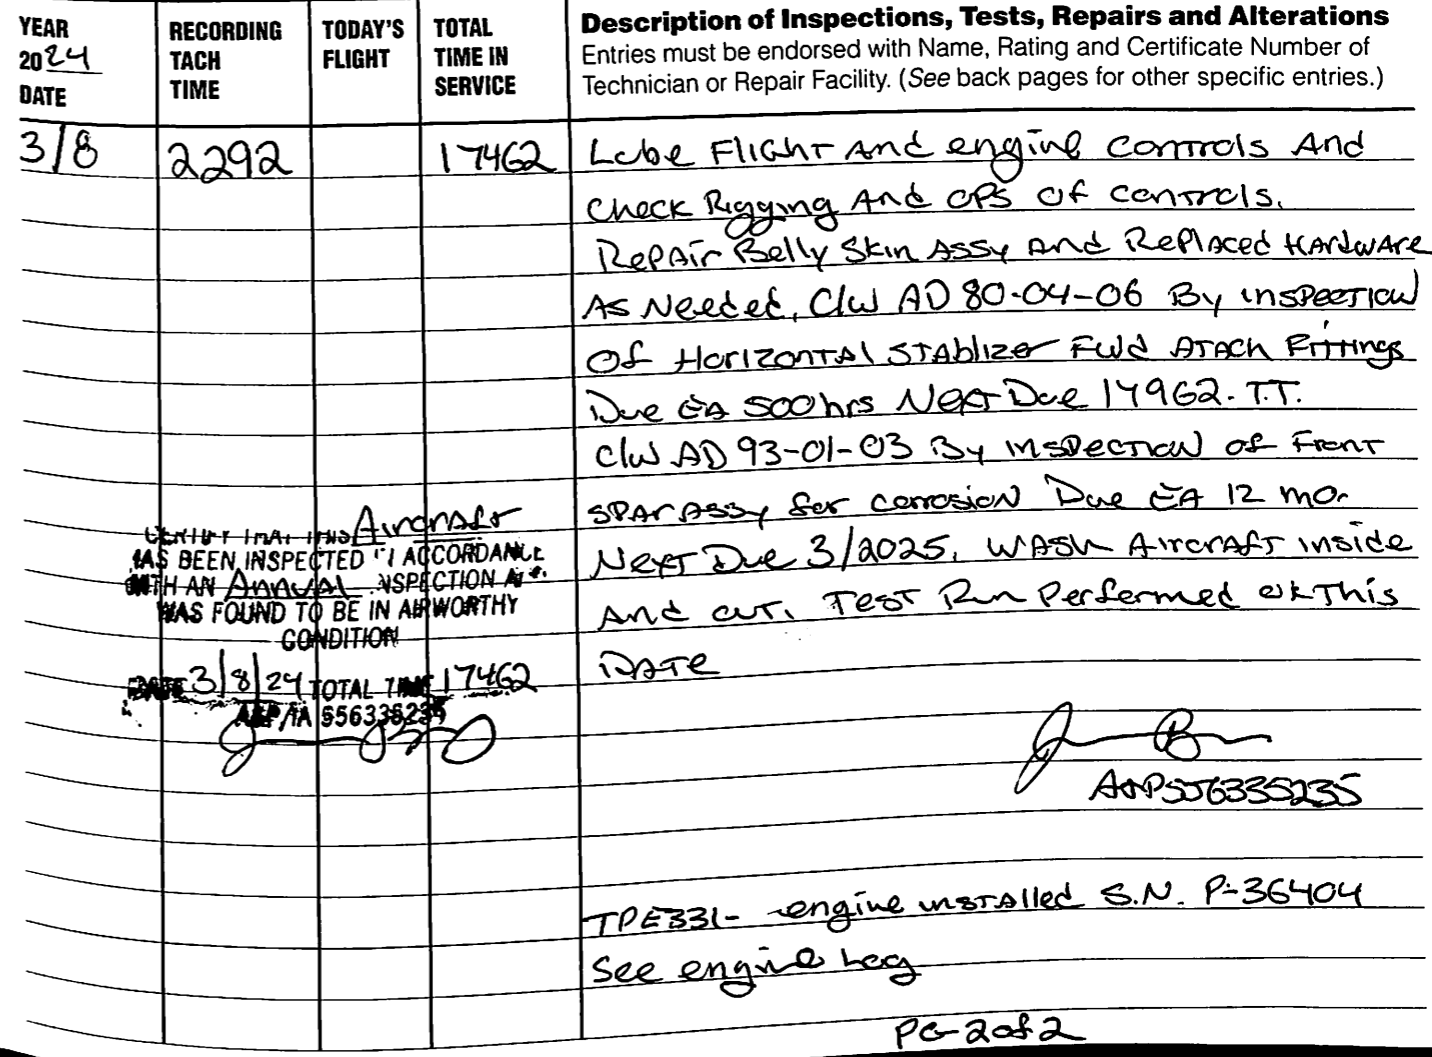 YEAR
2024
DATE
RECORDING
TACH
TIME
TODAY'S
FLIGHT
TOTAL
TIME IN
SERVICE
Description of Inspections, Tests, Repairs and Alterations
Entries must be endorsed with Name, Rating and Certificate Number of
Technician or Repair Facility. (See back pages for other specific entries.)
3/8 2292 17462 Lube Flight And engine controls And
Check Rigging And OPS of controls.
Repair Belly Skin Assy And Replaced Hardware
As Needed, C/W AD 80-04-06 By inspection
Of Horizontal STAblizer Fwd ATAch Fittings
Due EA 500hrs Next Due 17962. T.T.
C/W AD 93-01-03 By inspection of Front
SPAr Assy for corrosion Due EA 12 mo.
Next Due 3/2025. WASh AircrAft inside
And out. Test Run Performed ok This
DATE
CERTIFY THAT THIS Aircraft
HAS BEEN INSPECTED IN ACCORDANCE
WITH AN Annual INSPECTION
WAS FOUND TO BE IN AIRWORTHY
CONDITION
DATE 3/8/24 TOTAL TIME 17462
A&P/IA 556335235
A&P 556335235
TPE331- engine installed S.N. P-36404
See engine Log
PG-2of2